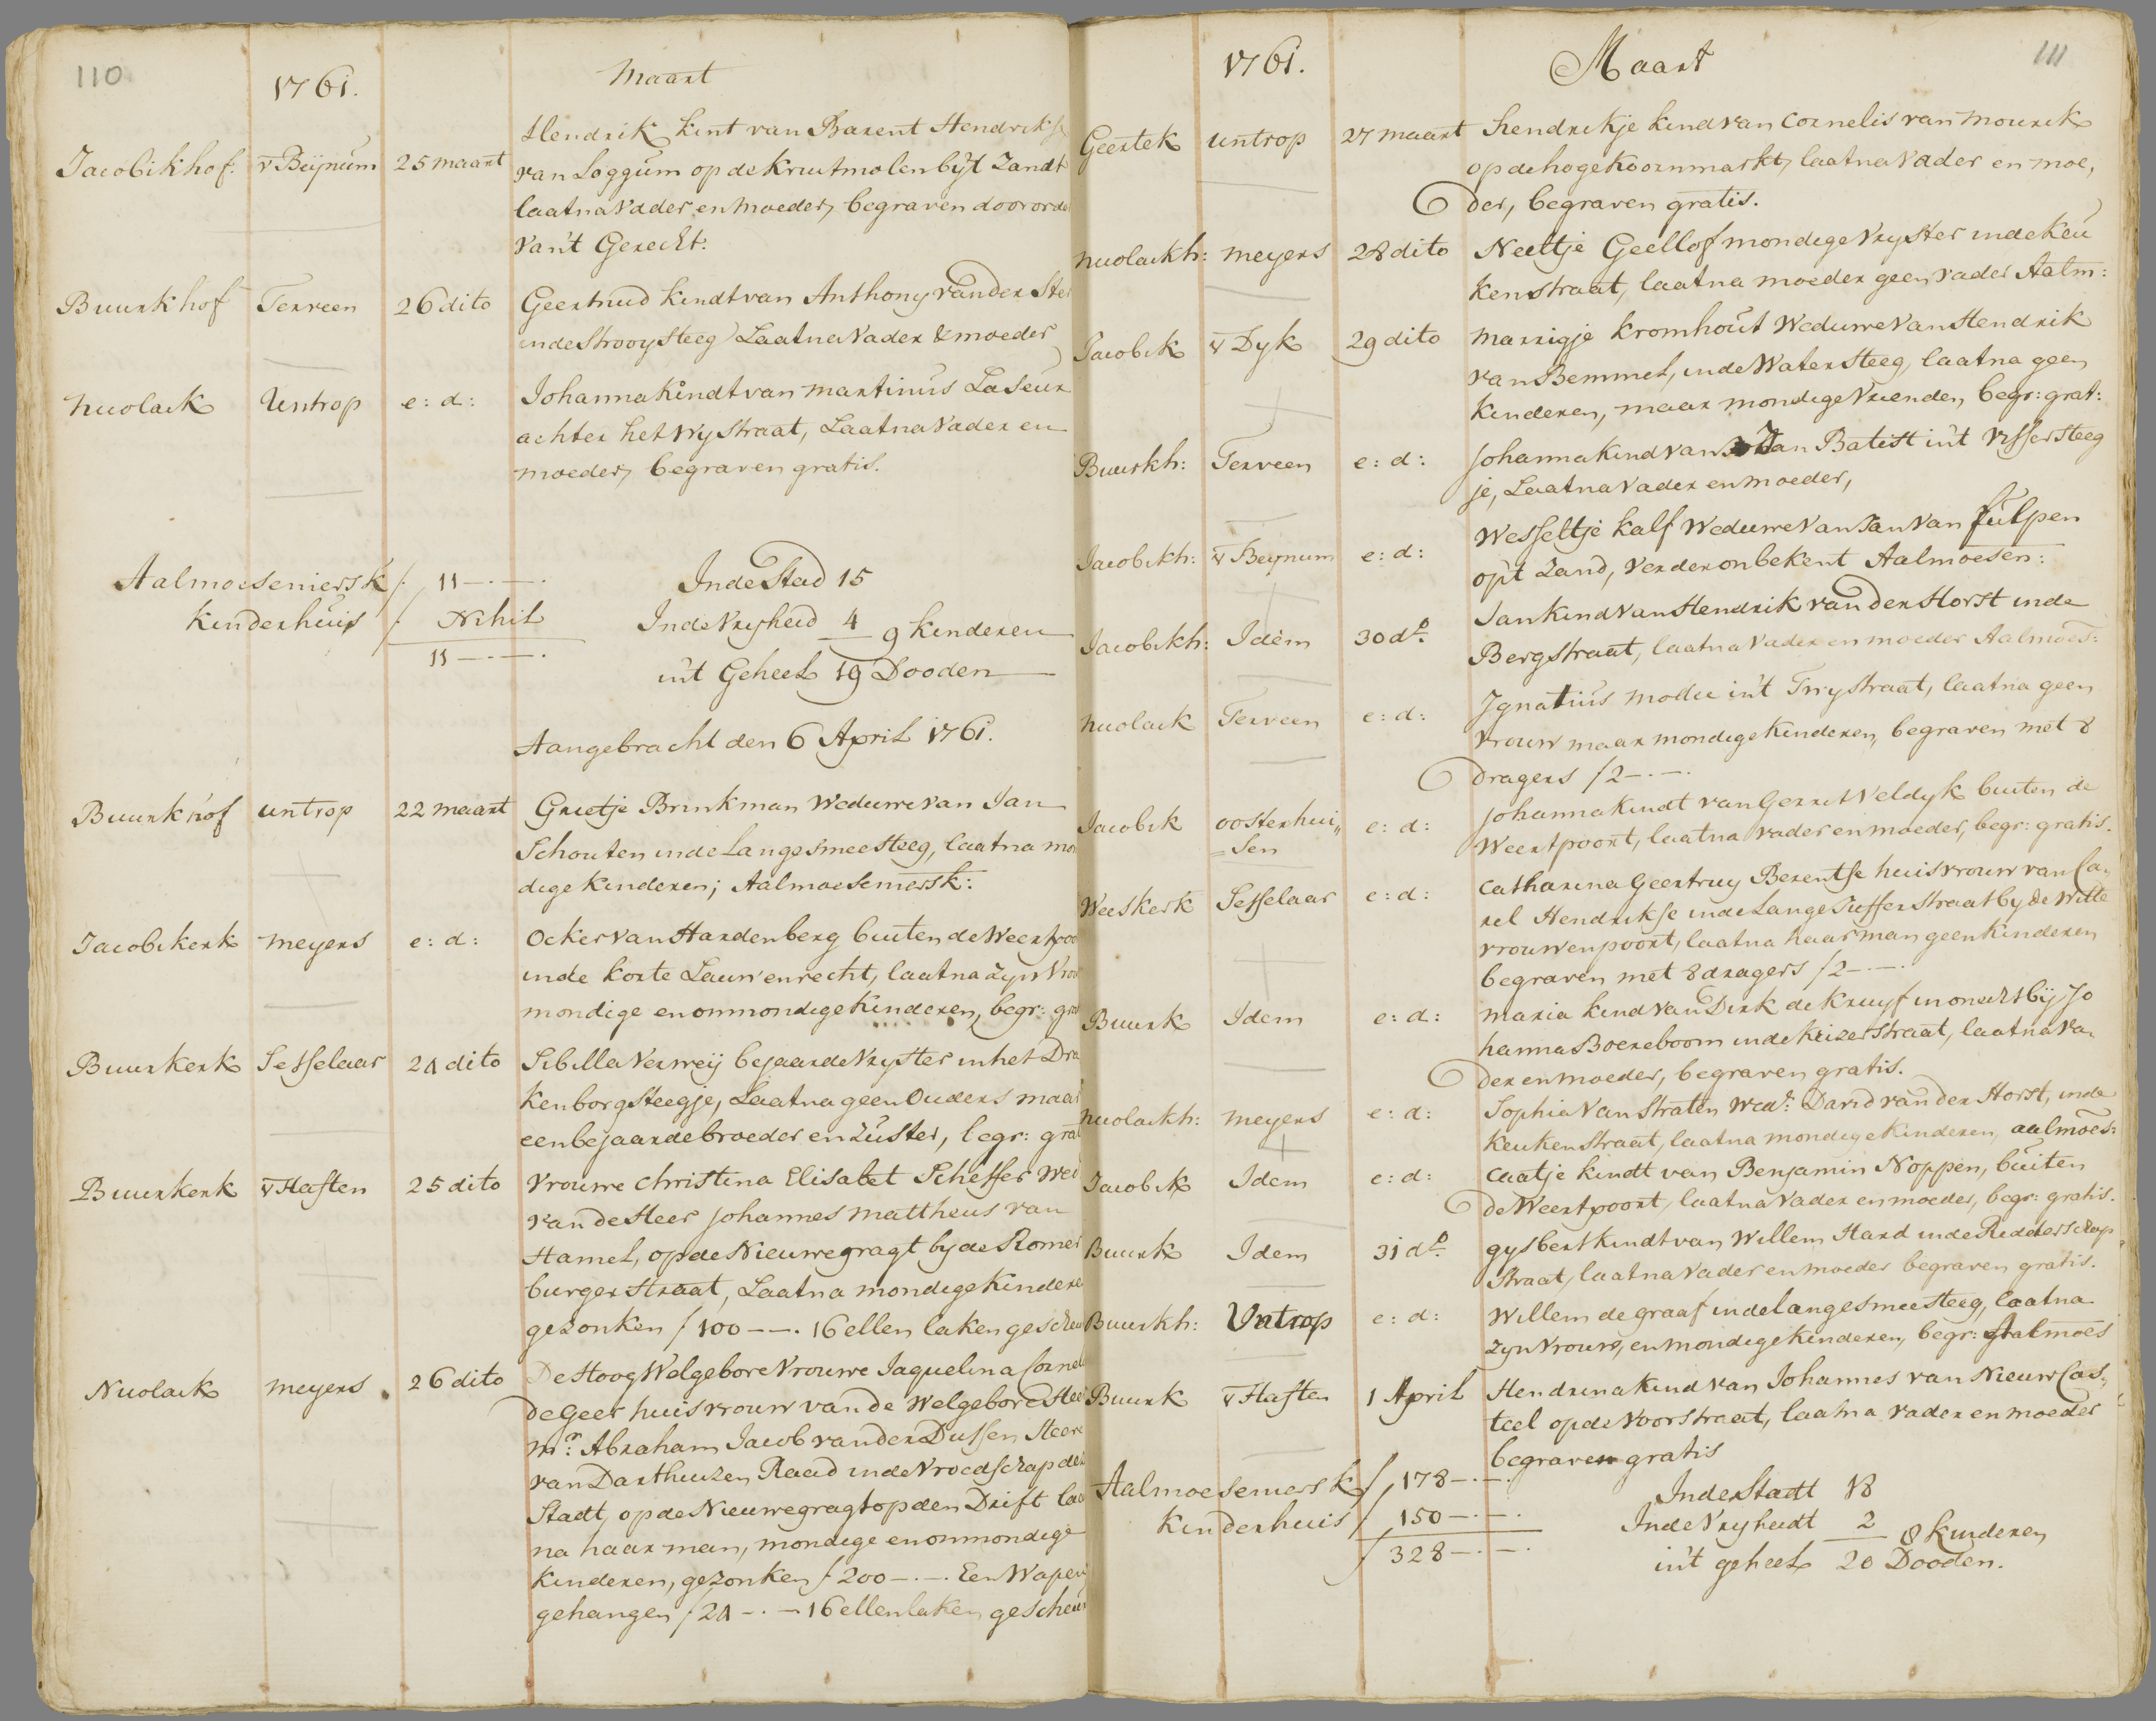 110
1761.
Maart
Jacobikhof. v Beijnum 25 maart Hendrik kint van Barent Hendrikse
van Loggum op de Kruutmolen by't Zandt
laatna Vader en Moeder, begraven door orde
van't Gerecht:
Buurkhof Terveen 26 dito Geertruid kindt van Anthony van der Ster
inde Strooy Steeg Laatna Vader & moeder
Nicolaik Untrop e: d: Johanna kindt van Martinus LaSeur
achter het Wystraat, Laatna Vader en
moeder, begraven gratis.
Aalmoeseniersk ƒ 11-.-. Inde Stad 15
Kinderhuis ƒ Nihil Inde Vryheid 4 9 kinderen
11-.-. in't Geheel 19 Dooden
Aangebracht den 6 April 1761.
Buurkhof untrop 22 maart Grietje Brinkman Weduwe van Jan
Schouten inde Lange smeesteeg, laatna mon
dige kinderen; Aalmoeseniersk:
Jacobikerk meyers e: d: Ocker van Hardenberg buiten de Weertpoo
inde korte Lauwenrecht, laatna zyn Vrou
mondige en onmondige kinderen, begr: gra
Buurkerk Sesselaar 24 dito Sibilla Verweij bejaarde Vryster in het Dra
kenborgsteegje, Laatna geen Ouders maar
een bejaarde broeder en Zuster, begr: grat
Buurkerk v Haften 25 dito Vrouwe Christina Elisabet Scheffer Wed
van de Heer Johannes Mattheus van
Hamel, op de Nieuwegragt by de Romer
burger Straat, Laatna mondige kindere
gezonken ƒ 100--. 16 ellen laken gescheu
Nicolaik meyers 26 dito De Hoog Welgebore Vrouwe Jaquelina Corneli
de Geer huisvrouw van de Welgebore Heer
Mr: Abraham Jacob van der Dussen Heere
van Darthuizen Raad inde Vroedschap der
Stadt, op de Nieuwegragt op den Drift laa
na haar man, mondige en onmondige
kinderen, gezonken ƒ 200-.-. Een Wapen
gehangen ƒ 24-.- 16 ellen laken gescheur
1761.
Maart
111
Geertek untrop 27 maart Hendrikje kind van Cornelis van Mourik
op de hoge Koornmarkt, laatna Vader en moe,
der, begraven gratis.
Nicolaikh: meyers 28 dito Neeltje Geellof mondige Vryster inde Keu
kenstraat, laatna moeder geen Vader Aalm:
Jacobik v Dyk 29 dito Marrigje Kromhout Weduwe Van Hendrik
van Bemmel, inde Watersteeg, laatna geen
kinderen, maar mondige Vrienden, begr: grat:
Buurkh: Terveen e: d: Johanna kind van Jan Batist in't Vissersteeg
je, Laatna Vader en moeder,
Jacobikh: v Beynum e: d: Wesseltje Kalf Weduwe Van Jan van Fulpen
op't Zand, verder onbekent Aalmoesen:
Jacobikh: Idem 30 do. Jan kind Van Hendrik van der Horst inde
Bergstraat, laatna Vader en moeder Aalmoes:
Nicolaik Terveen e: d: Ignatius Mollee in't Trystraat, laatna geen
vrouw maar mondige kinderen, begraven met 8
dragers ƒ 2-.-.
Jacobik oosterhui„ e: d: Johanna kindt van Gerrit Veldyk buiten de
=sen Weertpoort, laatna vader en moeder, begr: gratis.
Weeskerk Sesselaar e: d: Catharina Geertruy Berentse huisvrouw van Ca„
rel Hendrikse inde Lange Juffer straat by de Witte
vrouwen poort, laatna haar man geen kinderen
begraven met 8 dragers ƒ 2-.-.
Buurk Idem e: d: Maria kind van Dirk de Kruyf in onecht by Jo
hanna Boereboom inde Keizerstraat, laatna Va„
der en moeder, begraven gratis.
Nicolaikh: meyers e: d: Sophia Van Straten Wede: David van der Horst, inde
Keukenstraat, laatna mondige kinderen, aalmoes:
Jacobik Idem e: d: Caatje kindt van Benjamin Noppen, buiten
de Weertpoort, laatna Vader en moeder, begr: gratis.
Buurk Idem 31 do. Gysbert kindt van Willem Hard inde Ridderschap„
straat, laatna Vader en moeder begraven gratis.
Buurkh: Untrop e: d: Willem de graaf inde lange smeesteeg, laatna
zyn Vrouw, en mondige kinderen, begr: Aalmoes
Buurk v Haften 1 April Hendrina kind van Johannes van Nieuw Cas„
teel op de Voorstraat, laatna vader en moeder
begraven gratis
Aalmoeseniersk ƒ 178-.-. Inde Stadt 18
Kinderhuis ƒ 150-.-. Inde Vryheidt 2 8 kinderen
ƒ 328-.-. in't geheel 20 Dooden.